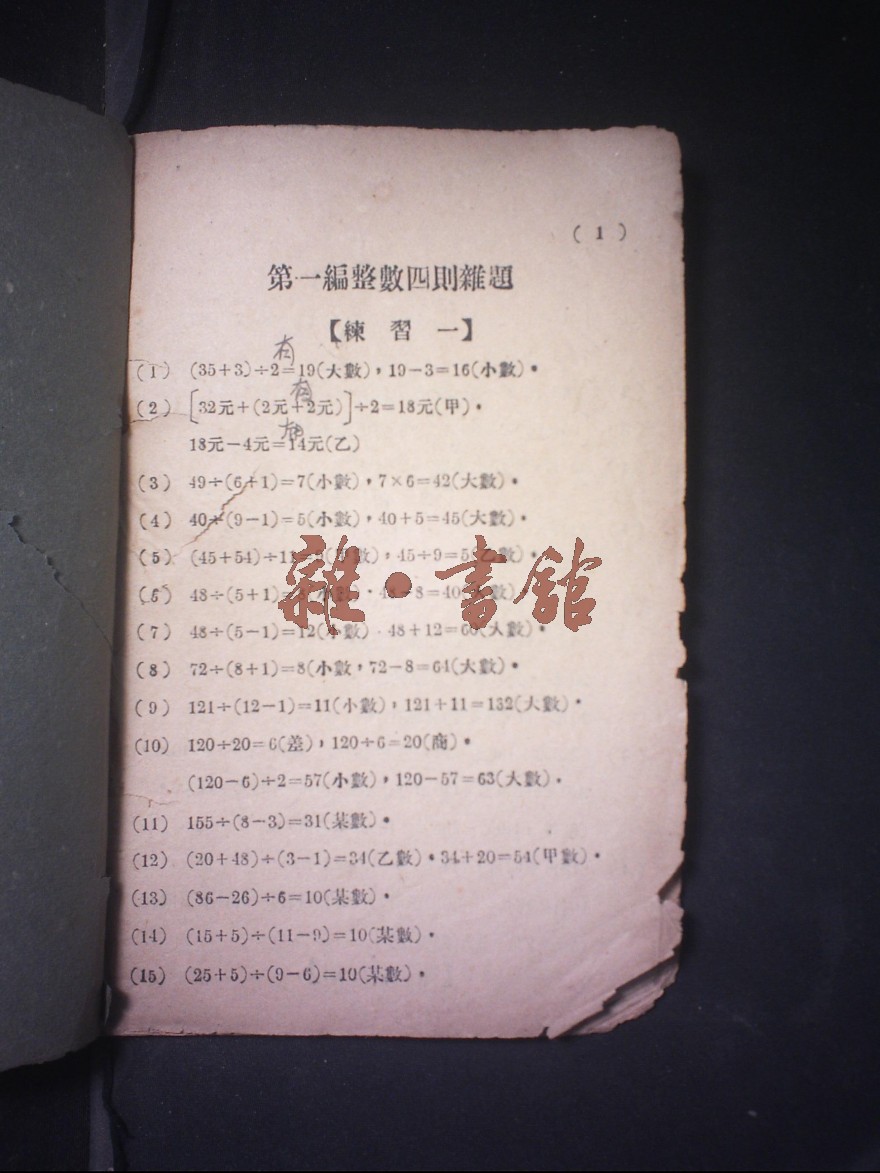 ( 1 )
第一編整數四則雜題
【練 習 一】
有
(1) (35+3)÷2=19(大數),19-3=16(小數)。
有
(2) [32元+(2元+2元)]÷2=18元(甲)。
18元-4元=14元(乙)
(3) 49÷(6+1)=7(小數),7×6=42(大數)。
(4) 40÷(9-1)=5(小數),40+5=45(大數)。
(5) (45+54)÷11=9(甲數),45÷9=5(乙數)。
(6) 48÷(5+1)=8(小數),48-8=40(大數)
(7) 48÷(5-1)=12(小數)。48+12=60(大數)。
(8) 72÷(8+1)=8(小數,72-8=64(大數)。
(9) 121÷(12-1)=11(小數),121+11=132(大數)。
(10) 120÷20=6(差),120÷6=20(商)。
(120-6)÷2=57(小數),120-57=63(大數)。
(11) 155÷(8-3)=31(某數)。
(12) (20+48)÷(3-1)=34(乙數)。34+20=54(甲數)。
(13) (86-26)÷6=10(某數)。
(14) (15+5)÷(11-9)=10(某數)。
(15) (25+5)÷(9-6)=10(某數)。
雜·書館